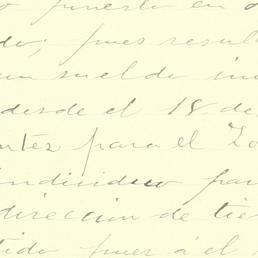 puesto en
do; pues resul
un sueldo in
desde el 18 de
ntes para el Zo
individuo par
direccion de tie
tido pues á el